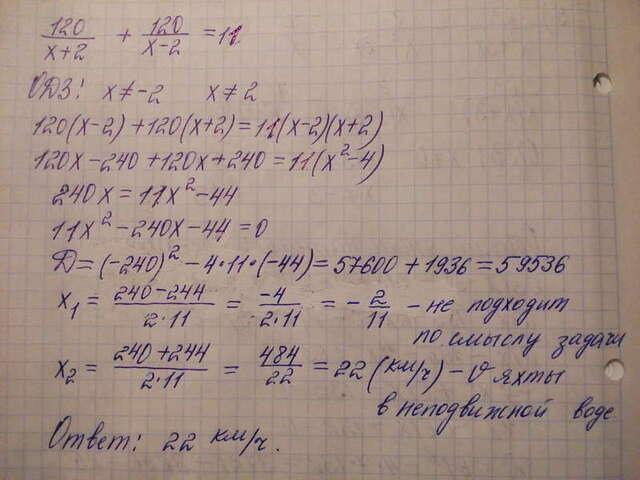 120/(x+2) + 120/(x-2) = 11
ОДЗ: x ≠ -2 x ≠ 2
120(x-2) + 120(x+2) = 11(x-2)(x+2)
120x - 240 + 120x + 240 = 11(x² - 4)
240x = 11x² - 44
11x² - 240x - 44 = 0
D = (-240)² - 4·11·(-44) = 57600 + 1936 = 59536
x₁ = (240-244)/(2·11) = -4/(2·11) = -2/11 - не подходит
по смыслу задачи
x₂ = (240+244)/(2·11) = 484/22 = 22 (км/ч) - v яхты
в неподвижной воде
Ответ: 22 км/ч.